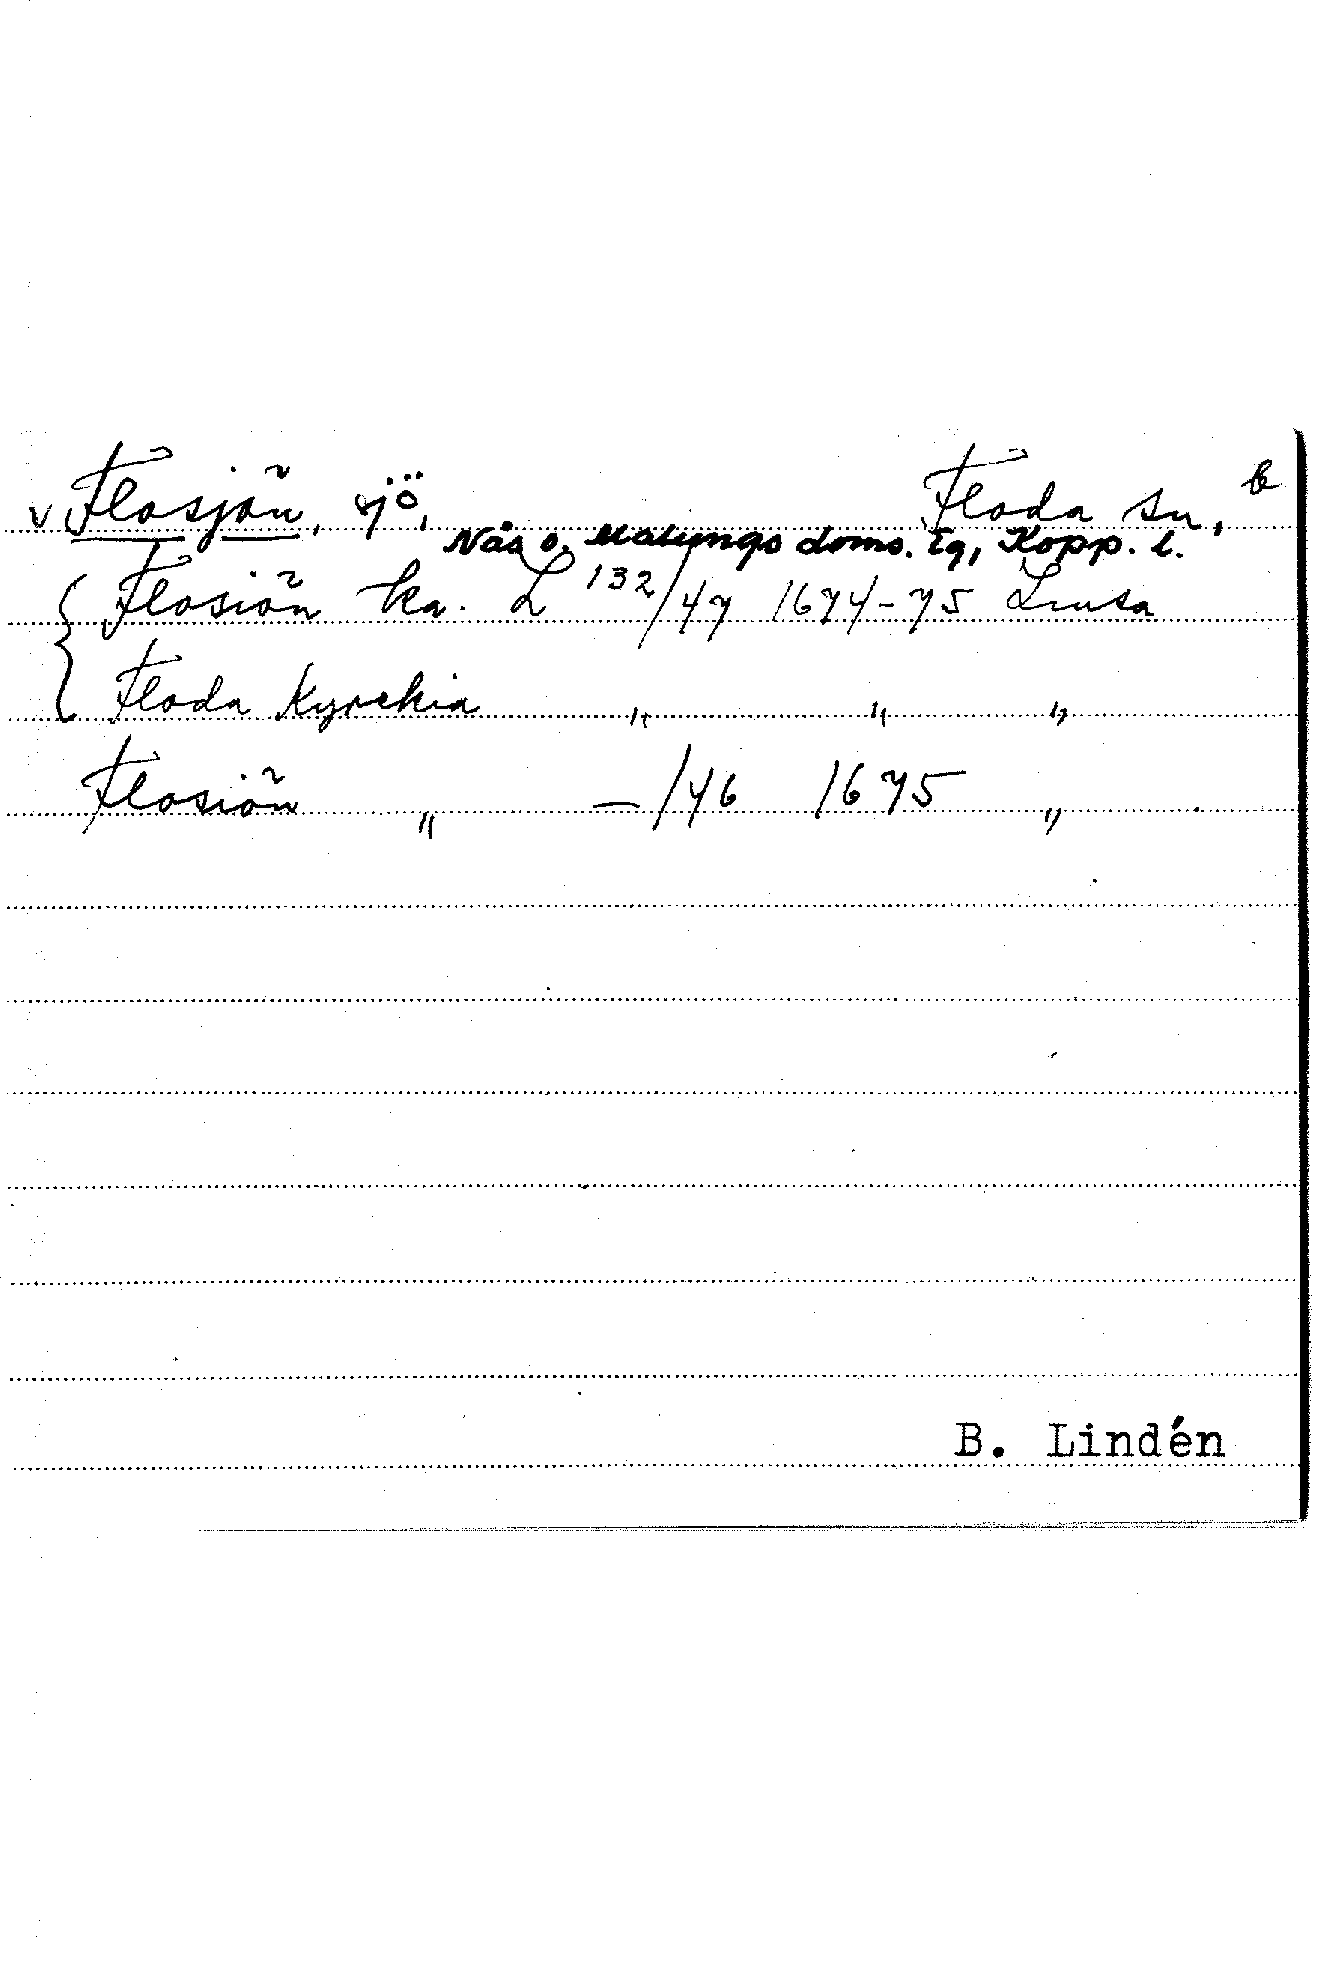 v Flosjön, sjö, Floda sn, b
Nås o. Malungs doms. tg, Kopp. l.
Flosiön ka. L 132/47 1674-75 Lmsa
Floda Kyrckia " " "
Flosiön " — /46 1675 "
B. Lindén